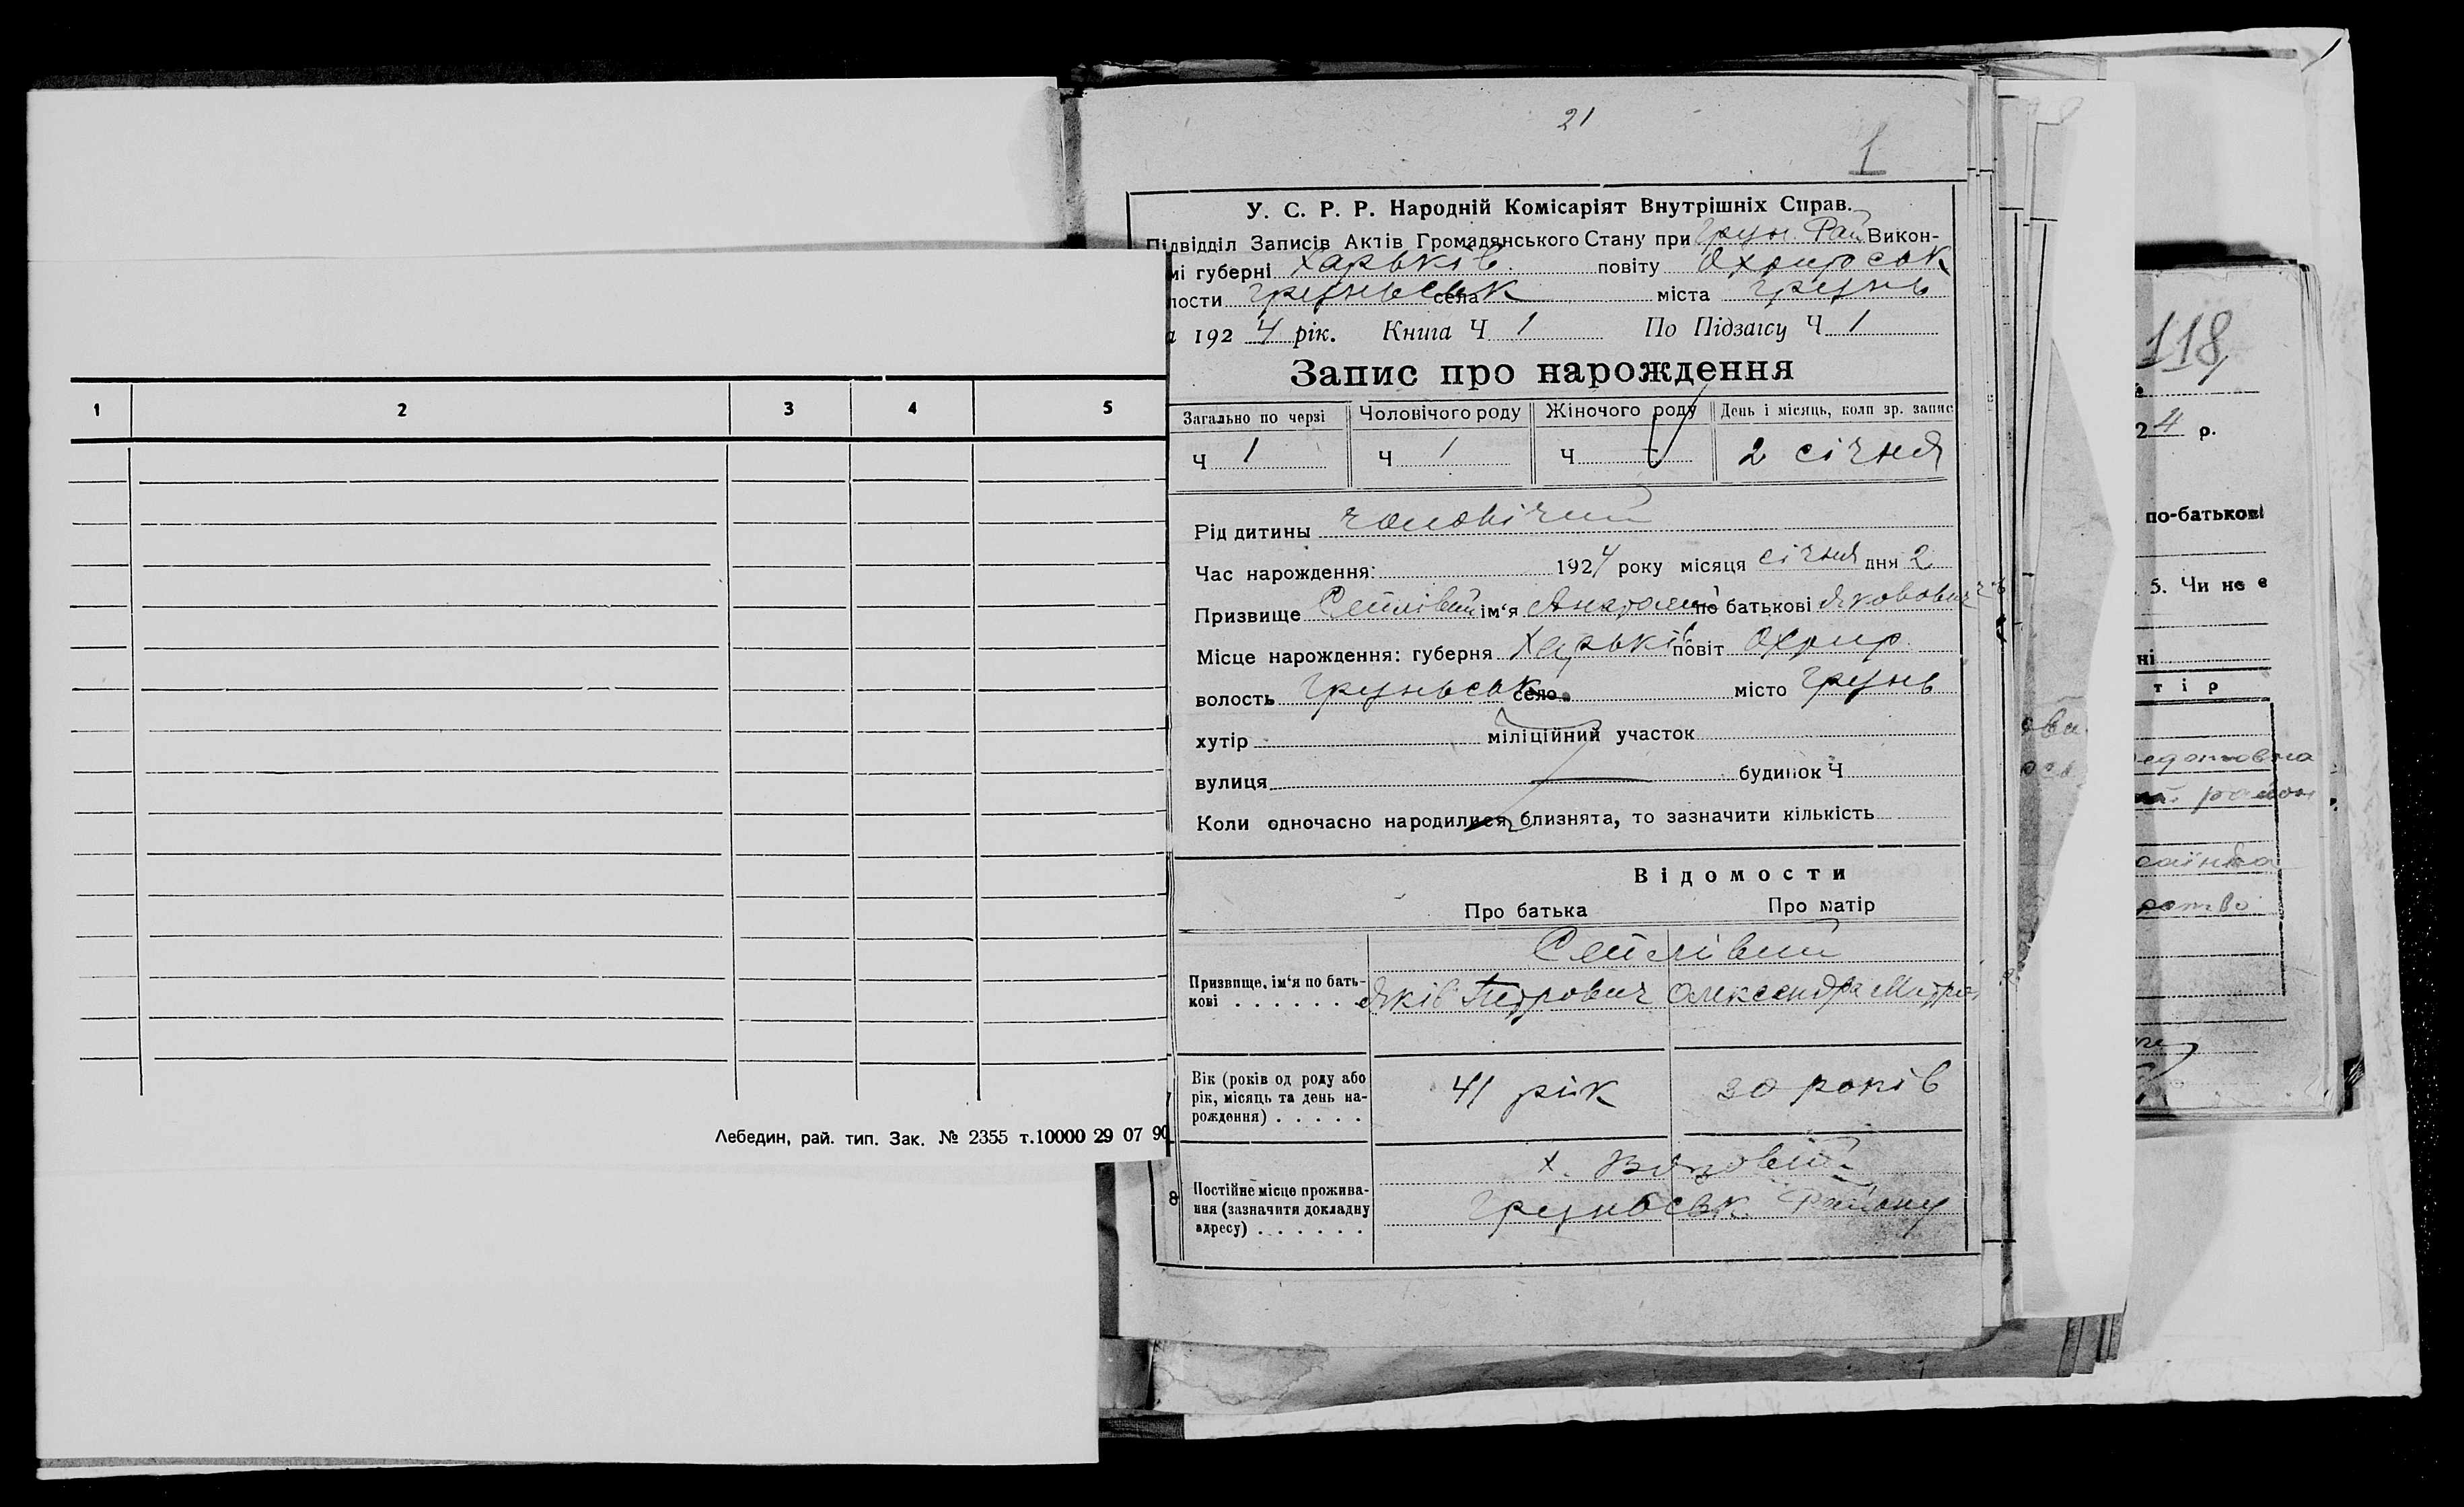 1 2 3 4 5
Лебедин, рай. тип. Зак. № 2355 т.10000 29 07 90
21
1
У. С. Р. Р. Народній Комісаріят Внутрішніх Справ.
Підвідділ Записів Актів Громадянського Стану при Грун. Рай Викон-
мі губерні Харьків. повіту Охтирськ
лости Груньськ села міста Грунь
а 192 4 рік. Книга Ч 1 По Підзагсу Ч 1
Запис про нарождення
Загально по черзі Чоловічого роду Жіночого роду День і місяць, коли зр. запис
Ч 1 Ч 1 Ч 2 січня
Рід дитины чоловічий
Час нарождення: 1924 року місяця січня дня 2
Призвище ім'я Анатолій по батькові Якович
Місце нарождення: губерня Харьків повіт Охтир.
волость Груньськ село місто Грунь
хутір міліційний участок
вулиця будинок Ч
Коли одночасно народилися близнята, то зазначити кількість
Відомости
Про батька Про матір
Призвище, ім'я по бать-
кові . . . . . . Яків Петрович Олександра Митро
Вік (років од роду або
рік, місяць та день на-
рождення) . . . . .
41 рік 20 років
8 Постійне місце прожива-
ння (зазначити докладну
адресу) . . . . . .
х.
Груньськ. Району
118
24 р.
по-батькові
5. Чи не є
ні
тір
район